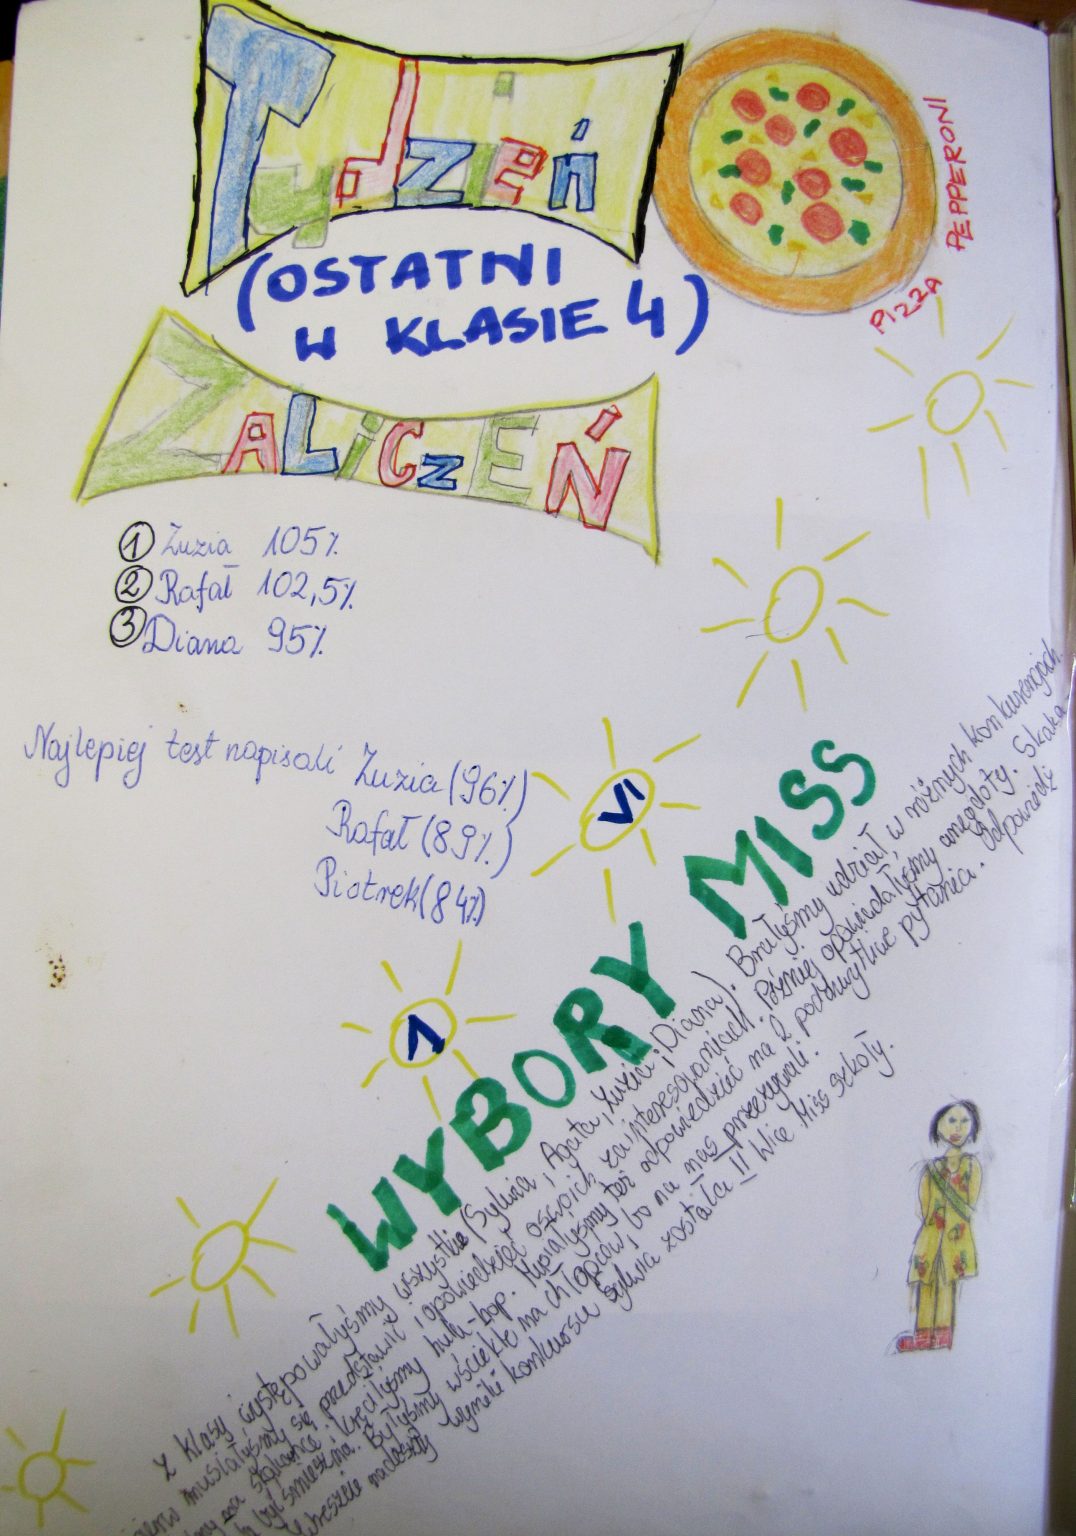 Tydzień
(OSTATNI
W KLASIE 4)
PIZZA PEPPERONI
ZALiCZEŃ
1 Zuzia 105%
2 Rafał 102,5%
3 Diana 95%
Najlepiej test napisali Zuzia (96%)
Rafał (89%)
Piotrek (84%)
1 VI
WYBORY MISS
Z klasy występowałyśmy wszystkie (Sylwia, Agata, Zuzia, Diana). Brałyśmy udział w różnych konkurencjach.
musiałyśmy się przedstawić i opowiedzieć o swoich zainteresowaniach. Później opowiadałyśmy anegdoty. Skaka
na skakance i kręciłyśmy hula-hop. Musiałyśmy też odpowiedzieć na 2 podchwytliwe pytania. Odpowiedź
być śmieszna. Byłyśmy wściekłe na chłopców, bo na nas przezywali.
Wreszcie nadeszły wyniki konkursu Sylwia została II Wice Miss szkoły.